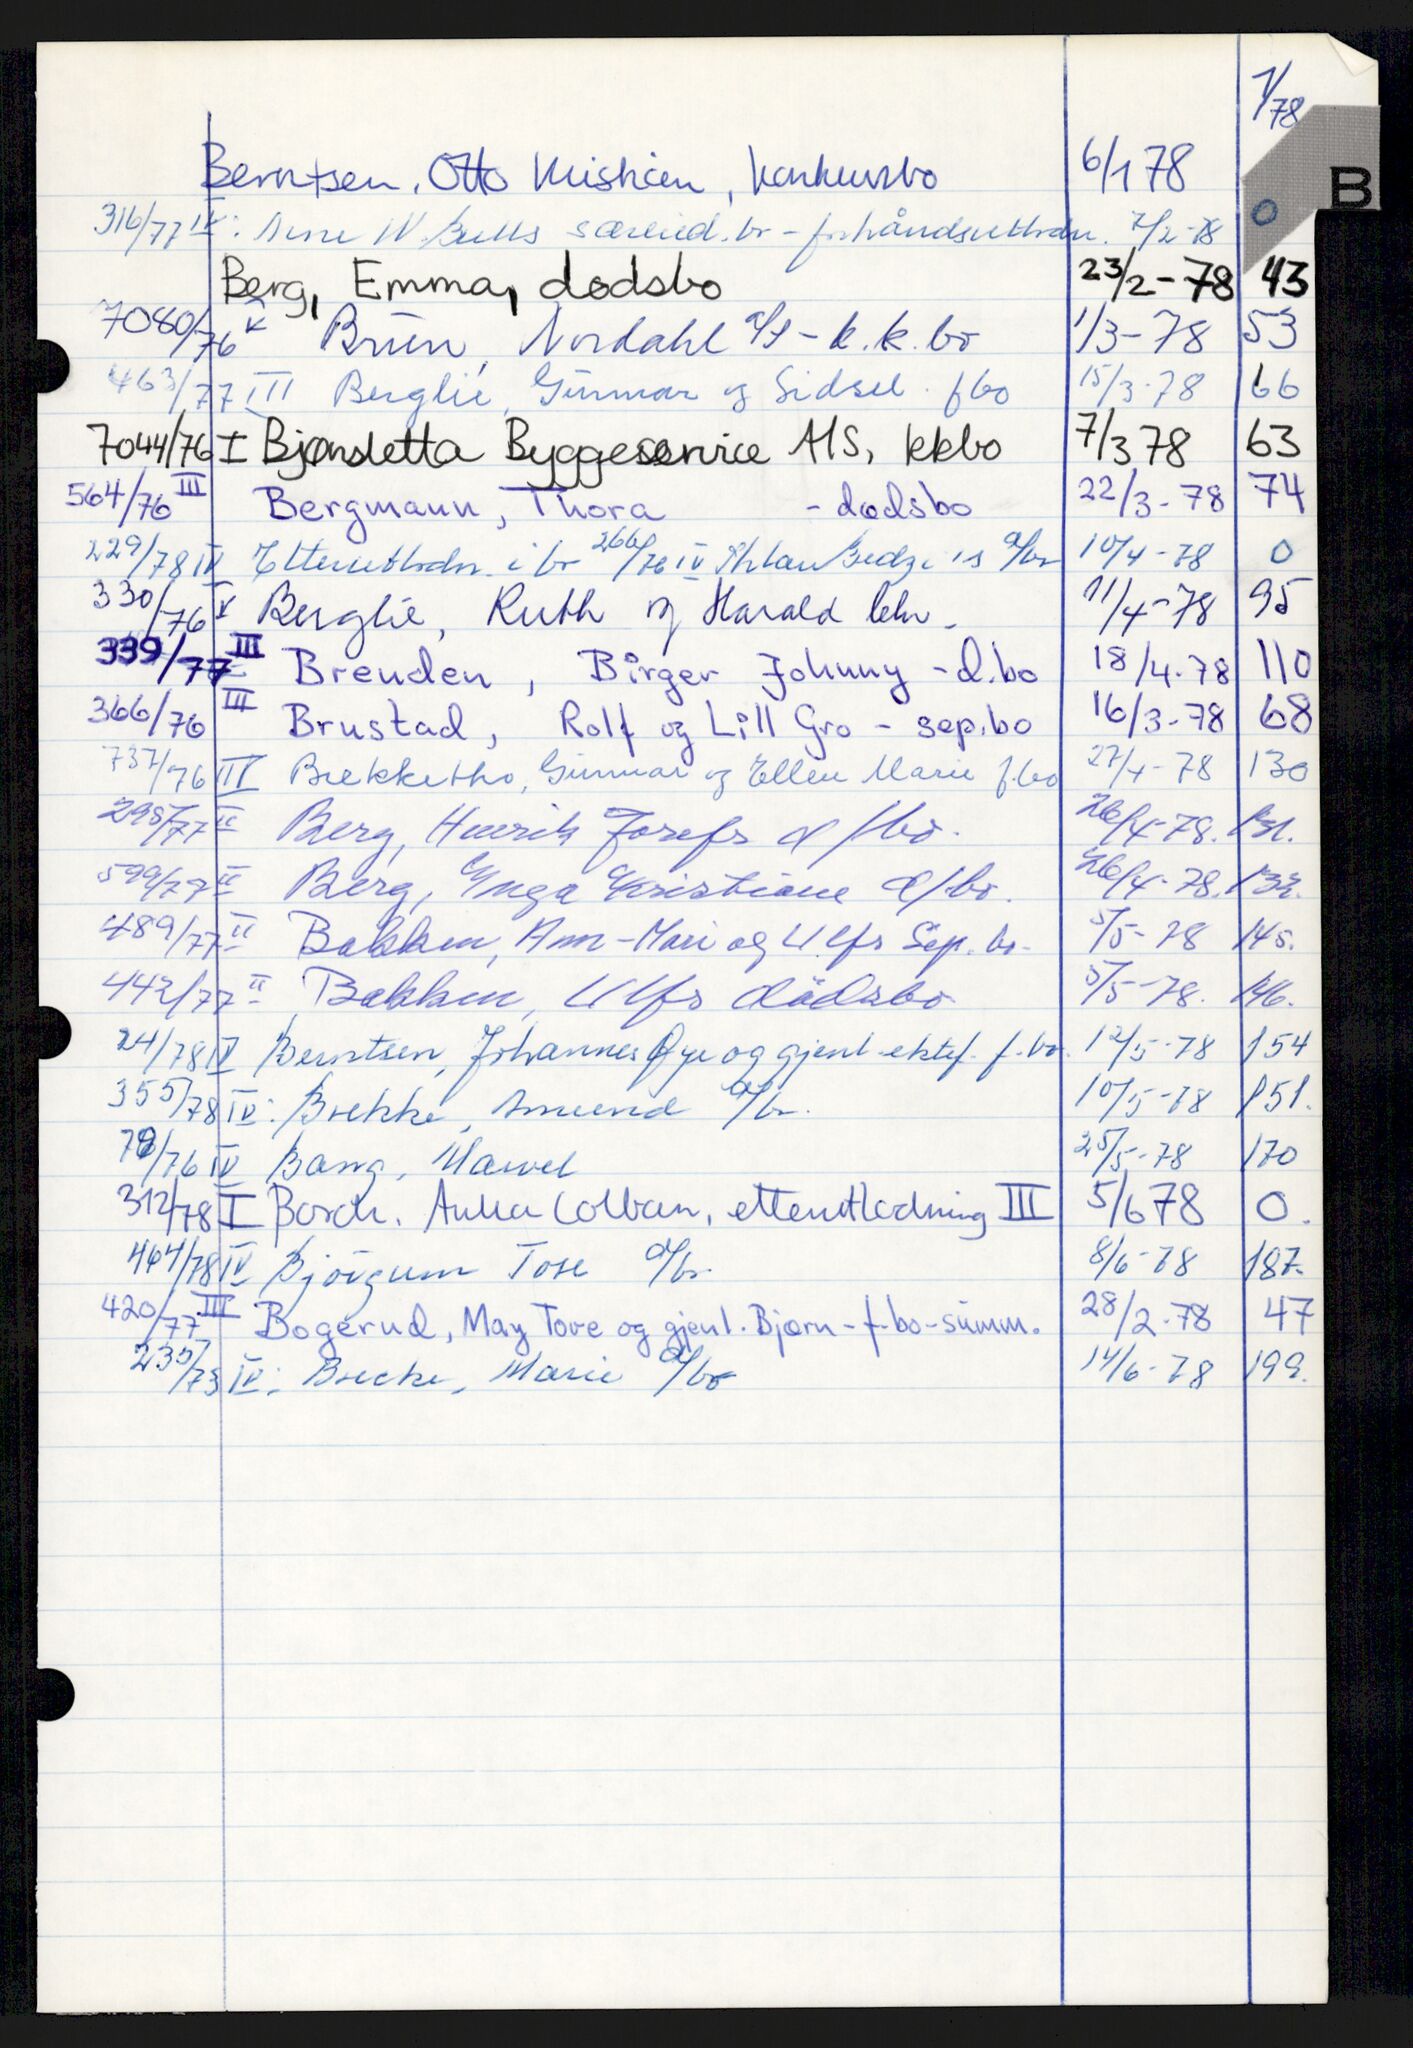 1/78
B
Berntsen, Otto Kristian, konkursbo 6/1 78
316/77 IV: Arne W. særeied.bo - forhåndsutlodn. 7/2-78 0
Berg, Emma, dødsbo 23/2-78 43
7080/76 V Bruun, Nordahl A/S - k.k.bo 1/3-78 53
463/77 III Berglie, Gunnar og Sidsel f.bo 15/3-78 66
7044/76 I Bjønsletta Byggeservice A/S, kkbo 7/3 78 63
564/76 III Bergmann, Thora - dødsbo 22/3-78 74
229/78 IV Etterutlodn. i bo 266/76 IV d/bo 10/4-78 0
330/76 V Berglie, Ruth og Harald 11/4-78 95
339/77 III Brenden, Birger Johnny - d.bo 18/4-78 110
366/76 III Brustad, Rolf og Lill Gro - sep.bo 16/3-78 68
737/76 III Brekketho, Gunnar og Ellen Marie f.bo 27/4-78 130
295/77 II Berg, Henrik Josefs d/bo. 26/4-78. 131.
599/77 II Berg, Inga Kristiane d/bo. 26/4-78. 132.
489/77 II Bakken, Ann-Mari og Ulfs Sep.bo- 5/5-78 145.
442/77 II Bakken, Ulfs dødsbo 5/5-78. 146.
24/78 IV Berntsen, Johannes Øye og gjenl. ektef. f.bo. 12/5-78 154
355/78 IV: Brekke, Amund d/bo. 10/5-78 151.
78/76 IV Bang, 25/5-78 170
312/78 I Borch, Anna Colban, etterutlodning III 5/6 78 0.
464/78 IV Bjørgum Tore d/bo. 8/6-78 187.
420/77 III Bogerud, May Tove og gjenl. Bjørn - f.bo - summ. 28/2-78 47
235/73 IV: Brekke, Marie d/bo 14/6-78 199.